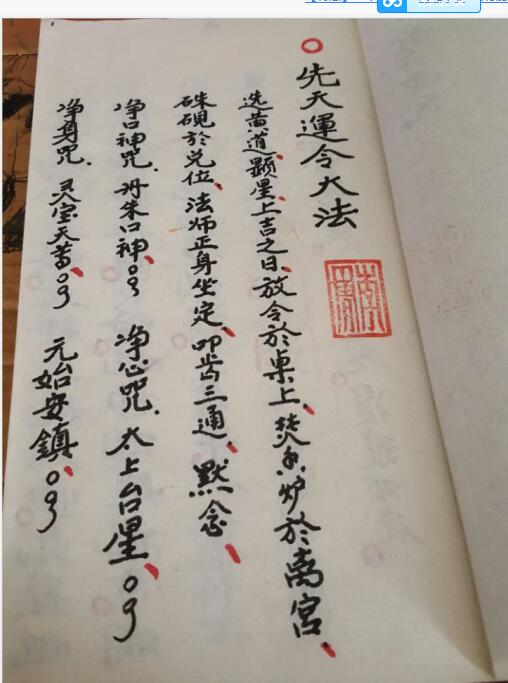 先天運令大法
选黄道顕星上吉之日、放令於桌上、焚香炉於离宫、
硃硯於兑位、法师正身坐定、叩齿三通、默念、
净口神咒.丹朱口神、○○ 净心咒.太上台星、○○
净身咒.灵宝天尊、○○ 元始安鎮、○○